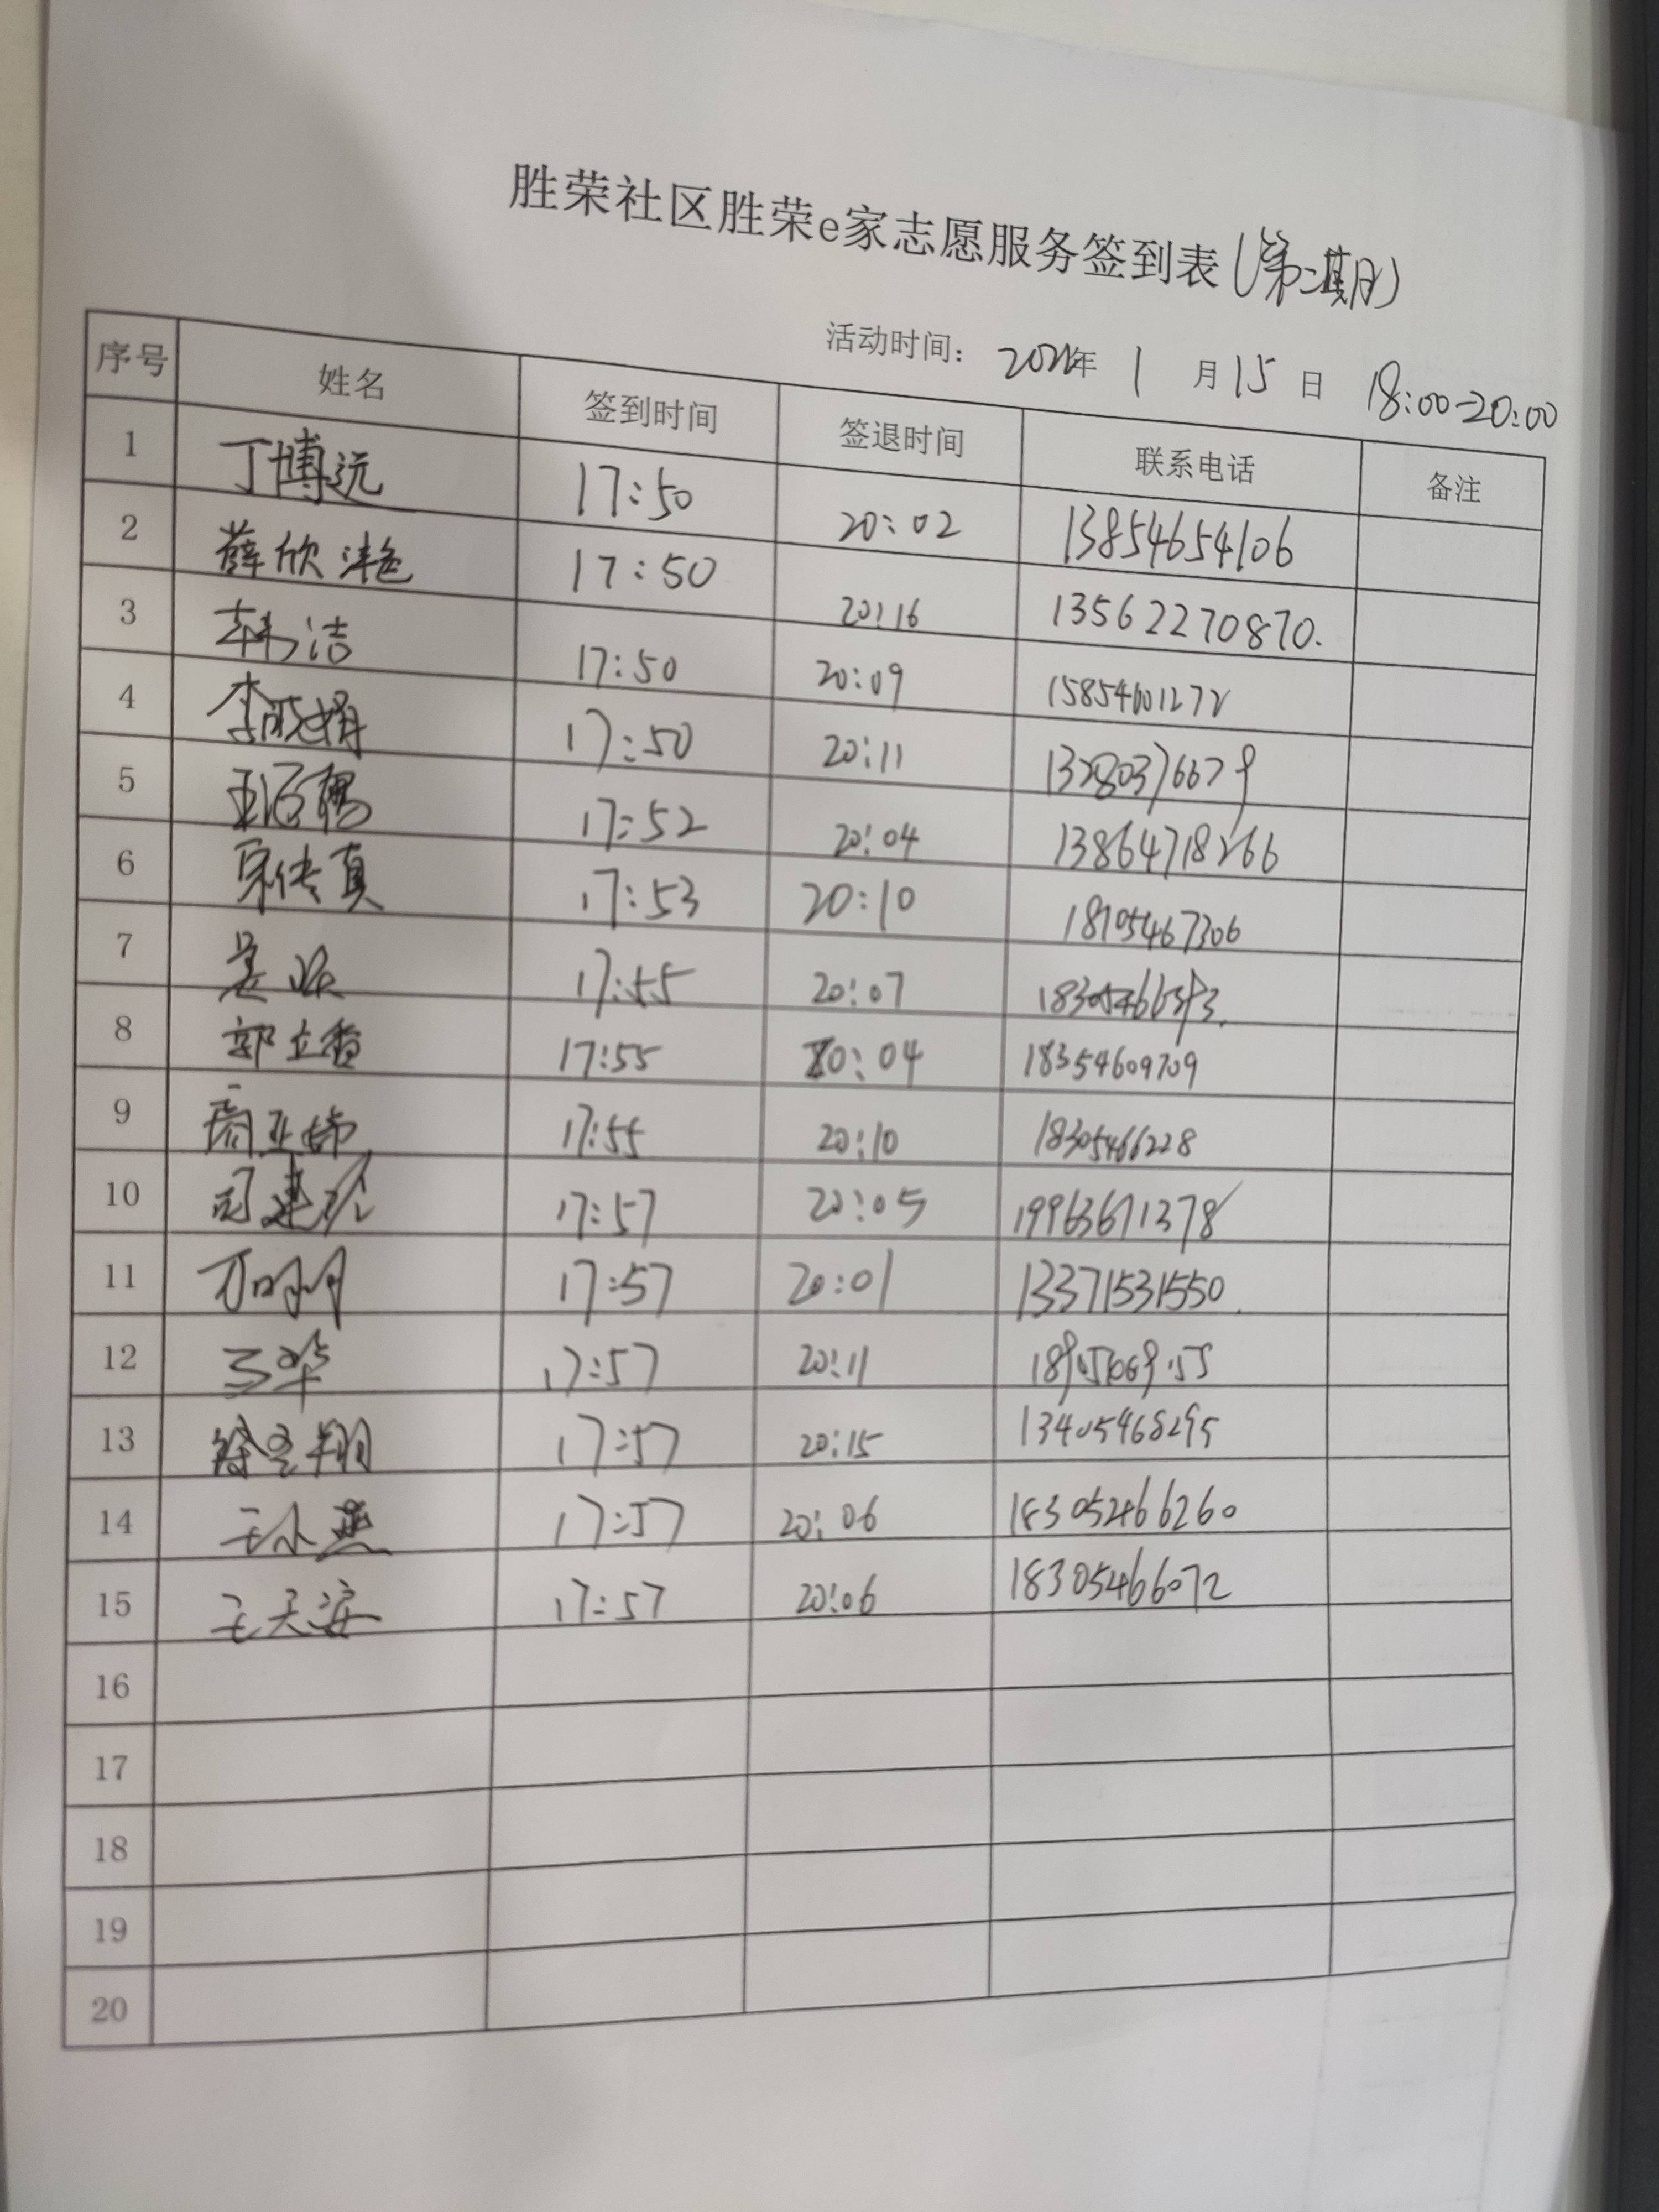 胜荣社区胜荣e家志愿服务签到表(第二期)
活动时间： 年 1 月 15 日 18:00-20:00
序号 姓名 签到时间 签退时间 联系电话 备注
1 丁博远 17:50 20:02 13854654106
2 薛欣艳 17:50 20:16 13562270870.
3 韩洁 17:50 20:09 15854601272
4 李晓娟 17:50 20:11 13280376679
5 17:52 20:04 13864718266
6 宋传真 17:53 20:10 18705467306
7 17:55 20:07
8 郭立香 17:55 20:04 18354609709
9 17:55 20:10 18305466228
10 17:57 20:05 19963671378
11 17:57 20:01 13371531550
12 17:57 20:11
13 17:57 20:15 13405468295
14 王小燕 17:57 20:06 18305466260
15 17:57 20:06 18305466072
16
17
18
19
20